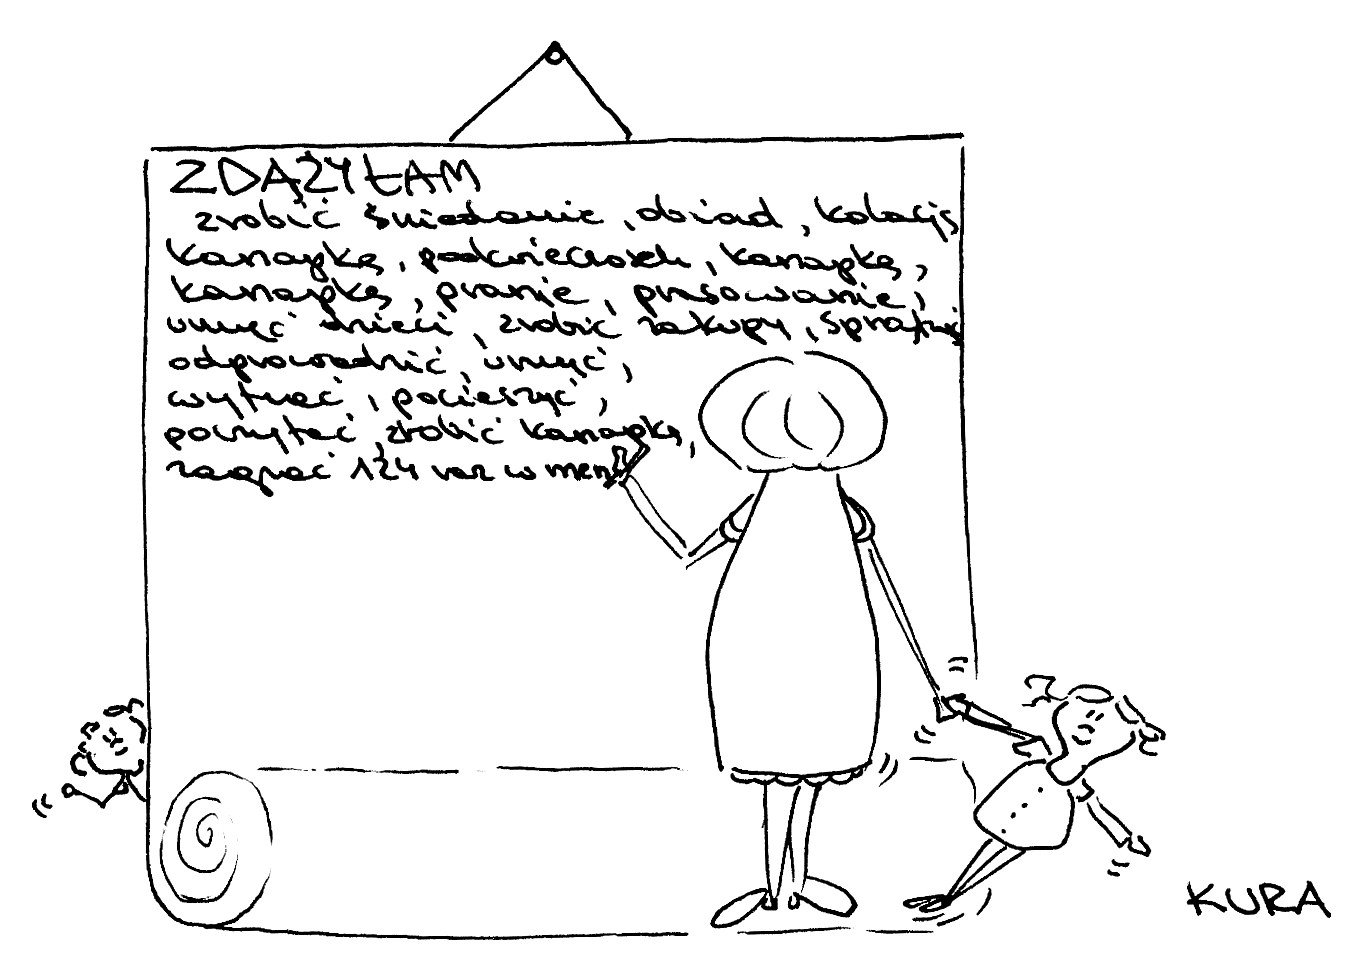 ZDĄŻYŁAM
zrobić śniadanie, obiad, kolację
kanapkę, podwieczorek, kanapkę,
kanapkę, pranie, prasowanie,
umyć dzieci, zrobić zakupy, sprzątnąć
odprowadzić, umyć,
wytrzeć, pocieszyć,
poczytać, zrobić kanapkę,
zagrać 124 raz w mem
KURA